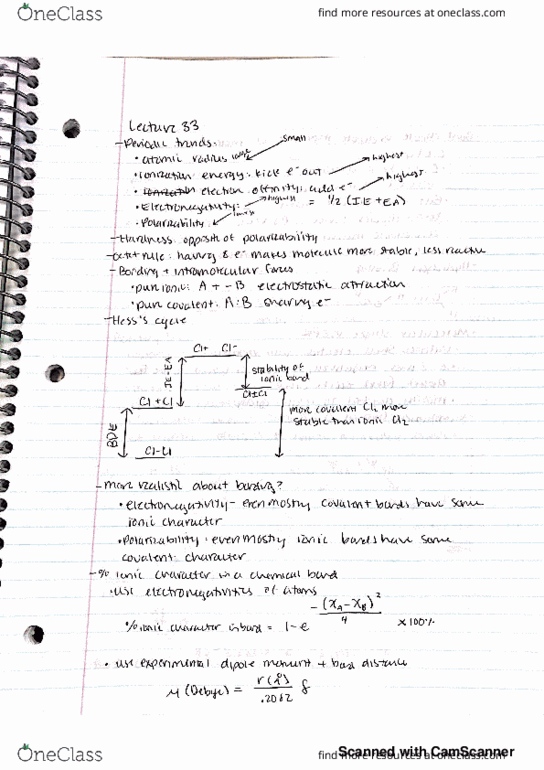 OneClass
find more resources at oneclass.com
Lecture 33
-Periodic trends
small
• atomic radius large
• Ionization energy: kick e⁻ out highest
• Ionization electron affinity: add e⁻ highest
• Electronegativity: highest = 1/2 (IE + EA)
• Polarizability
-Hardness opposite of polarizability
-octet rule: having 8 e⁻ makes molecule more stable, less reactive
-Bonding + intramolecular forces
• pure ionic: A + -B electrostatic attraction
• pure covalent: A:B sharing e⁻
-Hess's cycle
Cl+ Cl-
IE-EA
stability of
ionic bond
Cl±Cl
Cl + Cl
more covalent Cl₂ more
stable than ionic Cl₂
BDE
Cl-Cl
-more realistic about bonding?
• electronegativity - even mostly covalent bonds have some
ionic character
• Polarizability: even mostly ionic bonds have some
covalent character
-% ionic character in a chemical bond
• use electronegativities of atoms
% ionic character in bond = 1-e -(xA-xB)²/4 x100%
• use experimental dipole moment + bond distance
μ (Debye) = r(Å)/.2082 δ
Scanned with CamScanner
OneClass
find more resources at oneclass.com